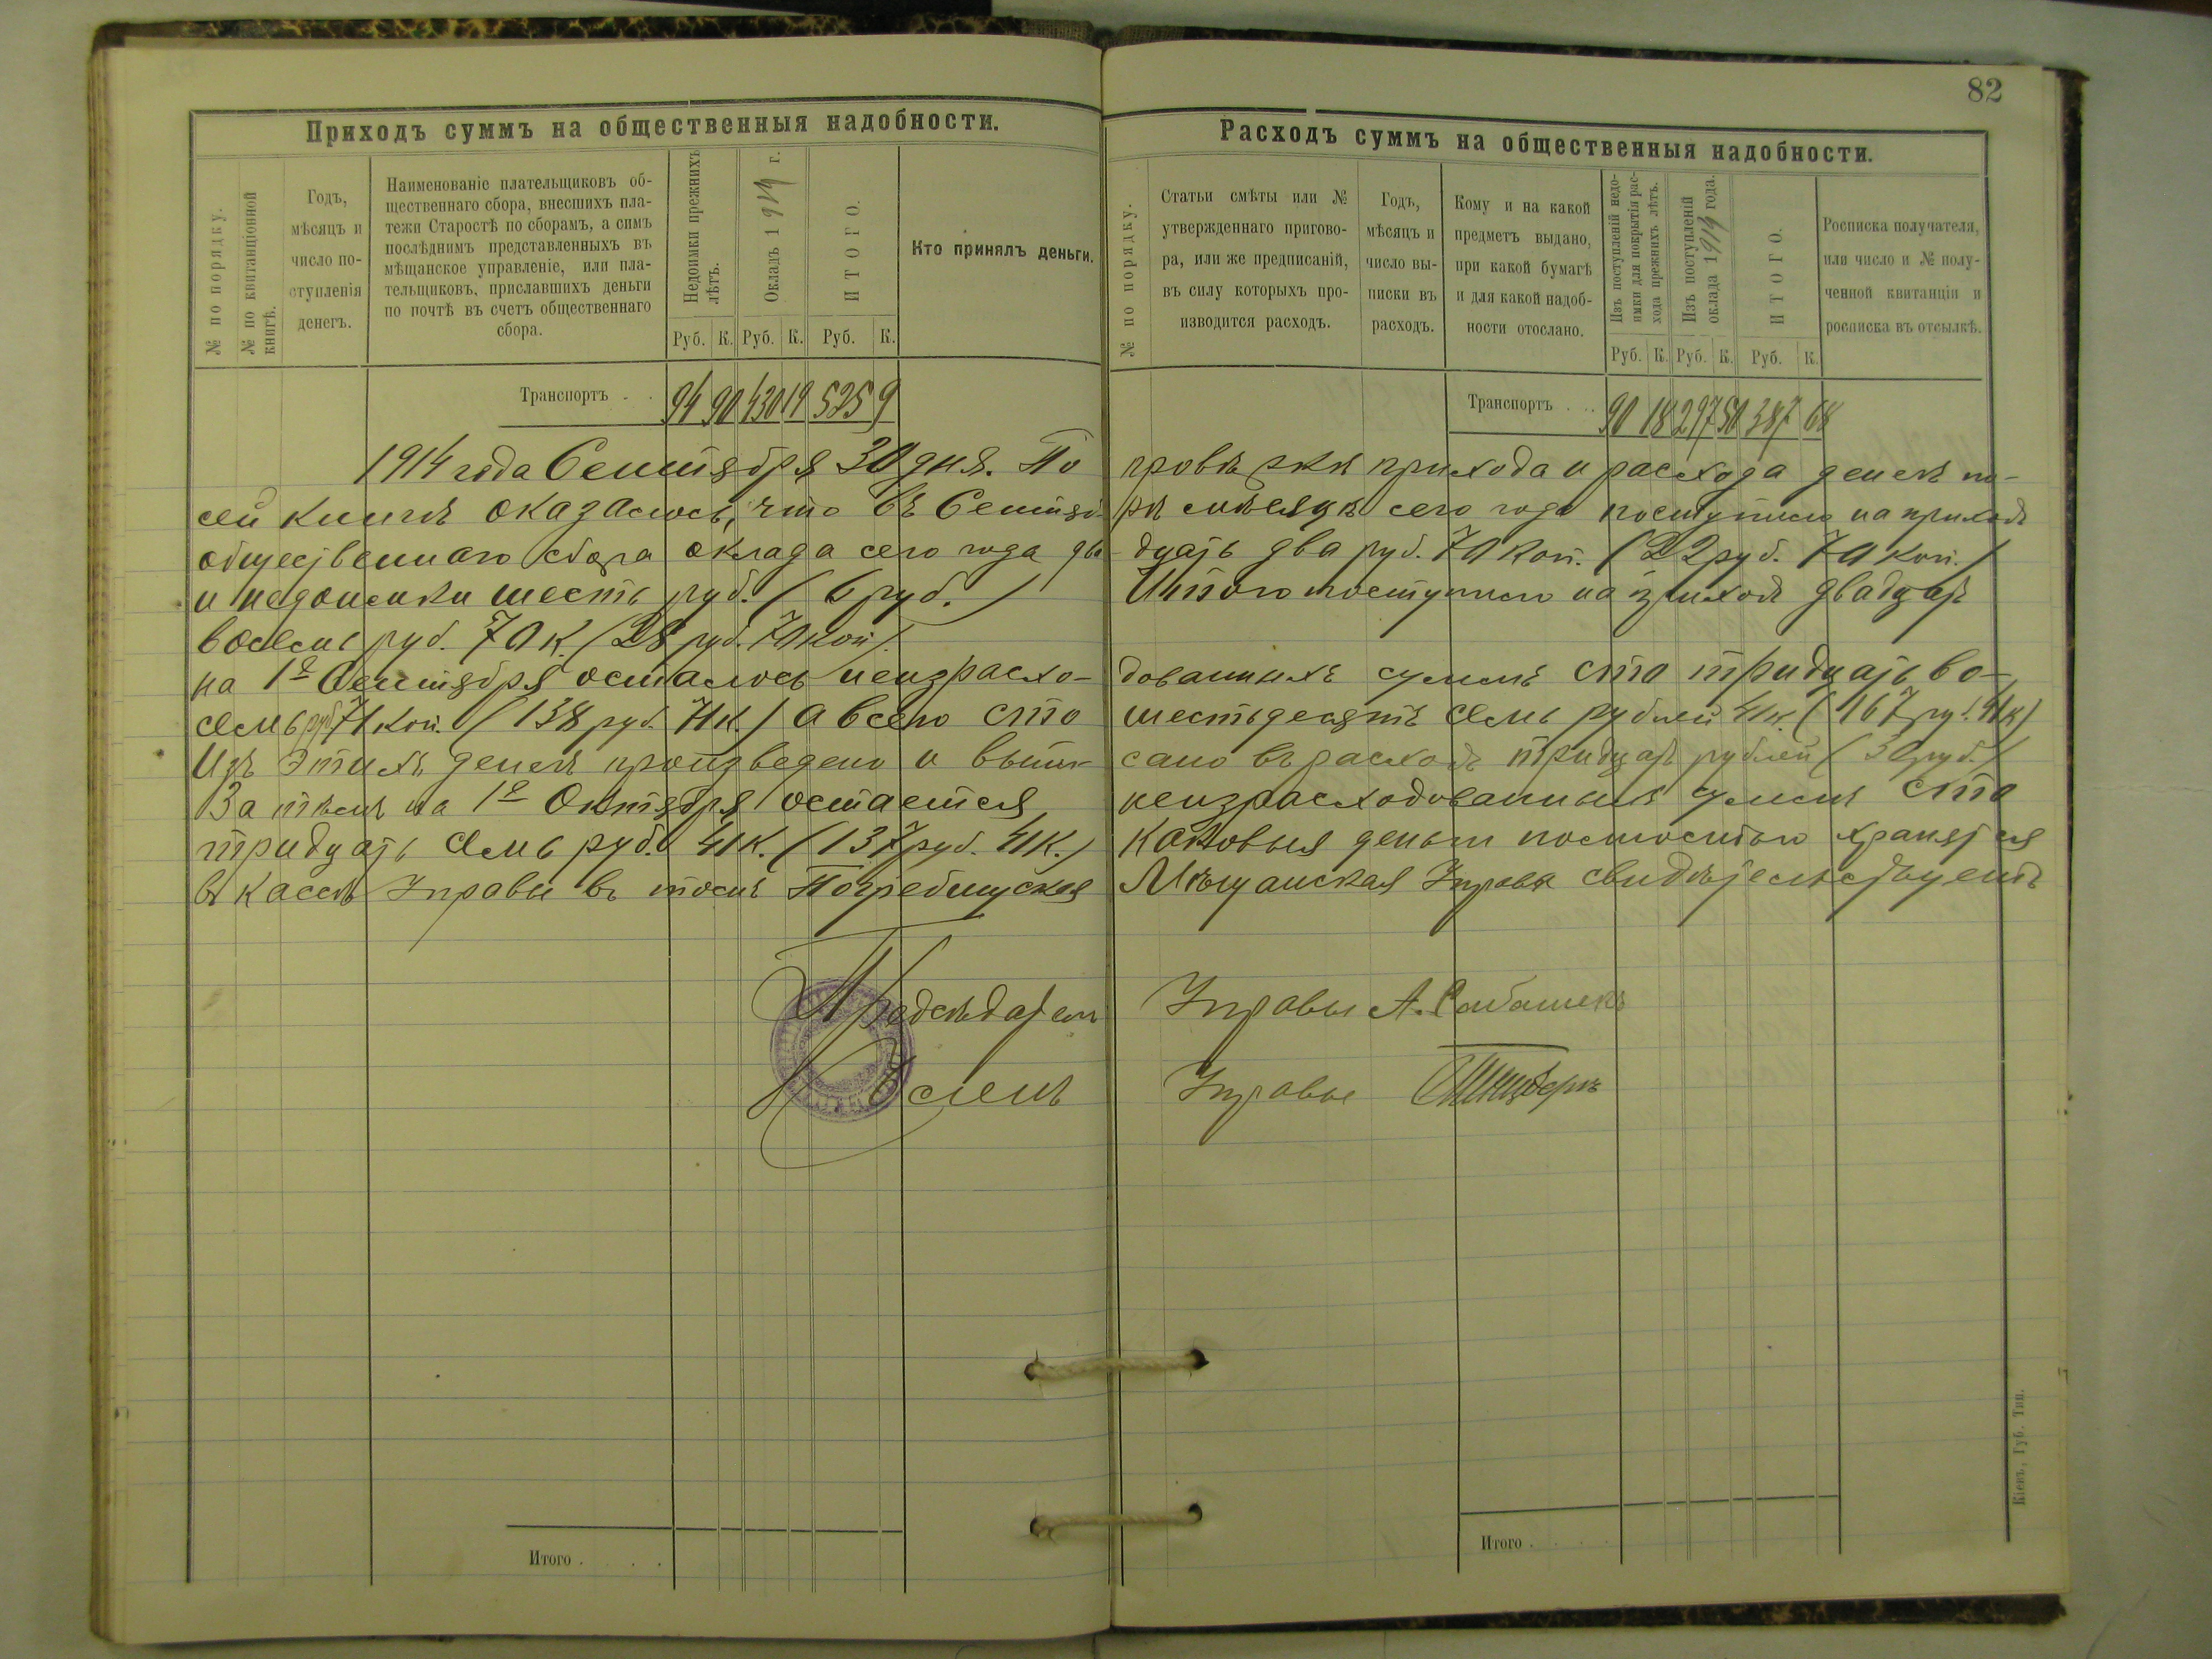 82
Приходъ суммъ на общественныя надобности.
№ по порядку.
№ по квитанціонной книгѣ.
Годъ,
мѣсяцъ и
число по-
ступленія
денегъ.
Наименованіе плательщиковъ об-
щественнаго сбора, внесшихъ пла-
тежи Старостѣ по сборамъ, а симъ
послѣднимъ представленныхъ въ
мѣщанское управленіе, или пла-
тельщиковъ, приславшихъ деньги
по почтѣ въ счетъ общественнаго
сбора.
Недоимки прежнихъ лѣтъ.
Окладъ 1914 г.
ИТОГО.
Кто принялъ деньги.
Руб. К. Руб. К. Руб. К.
Транспортъ . . 94 90 430 19 525 9
Расходъ суммъ на общественныя надобности.
№ по порядку.
Статьи смѣты или №
утвержденнаго пригово-
ра, или же предписаній,
въ силу которыхъ про-
изводится расходъ.
Годъ,
мѣсяцъ и
число вы-
писки въ
расходъ.
Кому и на какой
предметъ выдано,
при какой бумагѣ
и для какой надоб-
ности отослано.
Изъ поступленій недо-
имки для покрытія рас-
хода прежнихъ лѣтъ.
Изъ поступленій
оклада 1914 года.
ИТОГО.
Росписка получателя,
или число и № полу-
ченной квитанціи и
росписка въ отсылкѣ.
Руб. К. Руб. К. Руб. К.
Транспортъ . . . 90 18 297 50 387 68
1914 года Сентября 30 дня. По провѣркѣ прихода и расхода денегъ по-
сей книгѣ оказалось, что въ Сентябрѣ мѣсяцѣ сего года поступило на приходъ
общественнаго сбора оклада сего года двадцать два руб. 70 коп. (22 руб. 70 коп.)
и недоимки шесть руб. (6 руб.) Итого поступило на приходъ двадцать
восемь руб. 70 к. (28 руб. 70 коп).
на 1е Сентября осталось неизрасхо- дованныхъ суммъ сто тридцать во-
семь руб. 71 коп. (138 руб. 71 к.) а всего сто шестьдесятъ семь рублей 41 к (167 руб. 41 к)
Изъ этихъ денегъ произведено и выпи- сано въ расходъ тридцать рублей (30 руб.)
За тѣмъ на 1е Октября остается неизрасходованныхъ суммъ сто
тридцать семь руб. 41 к. (137 руб. 41 к.) каковыя деньги полностью хранятся
въ кассѣ Управы въ томъ Погребищская Мѣщанская Управа свидѣтельствуетъ
Предсѣдатель Управы А.
Членъ Управы
Итого . . . .
Итого . . . .
Кіевъ, Губ. Тип.